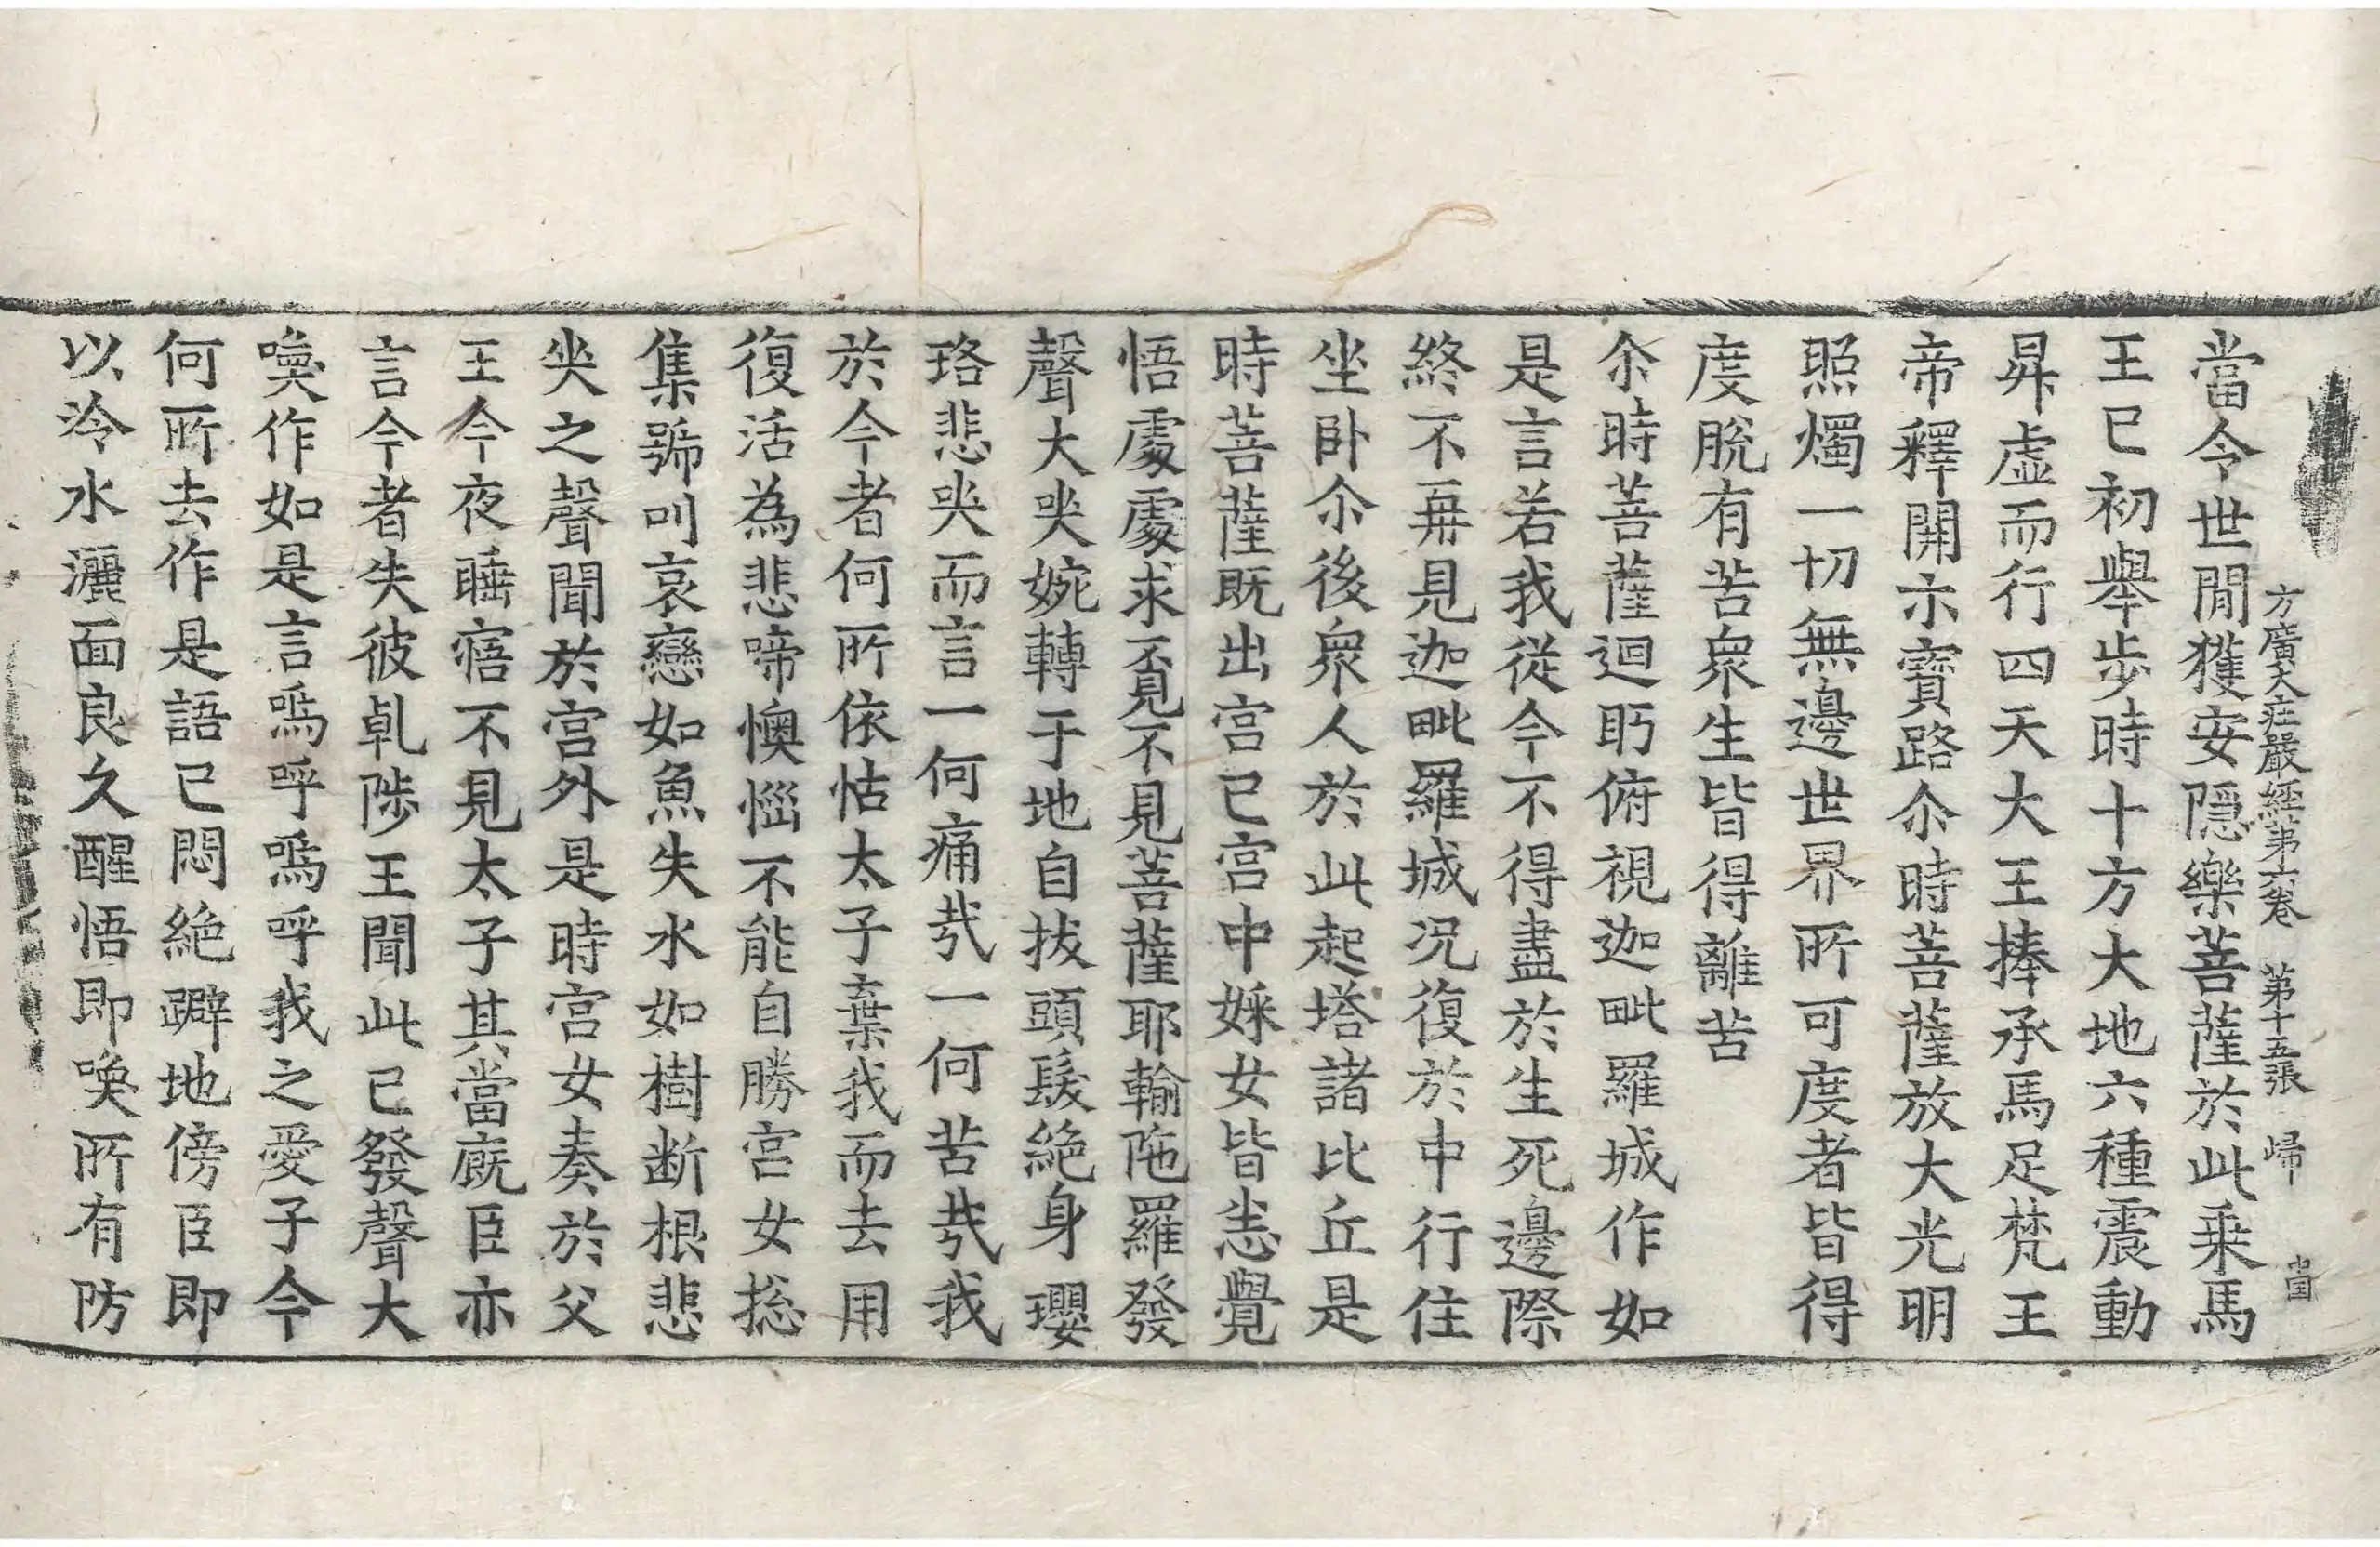 方廣大莊嚴經第六卷 第十五張 歸
當令世閒獲安隱樂菩薩於此乗馬
王已初舉步時十方大地六種震動
昇虛而行四天大王捧承馬足梵王
帝釋開示寶路尒時菩薩放大光明
照燭一切無邊世界所可度者皆得
度脫有苦衆生皆得離苦
尒時菩薩迴眄俯視迦毗羅城作如
是言若我從今不得盡於生死邊際
終不再見迦毗羅城况復於中行住
坐卧尒後衆人於此起塔諸比丘是
時菩薩既出宮已宮中婇女皆悉覺
悟處處求覓不見菩薩耶輸陁羅發
聲大哭婉轉于地自拔頭髮絕身瓔
珞悲哭而言一何痛㢤一何苦㢤我
於今者何所依怙太子棄我而去用
復活為悲啼懊惱不能自勝宮女揔
集號叫哀戀如魚失水如樹斷根悲
哭之聲聞於宮外是時宮女奏於父
王今夜睡寤不見太子其當廐臣亦
言今者失彼乹陟王聞此已發聲大
喚作如是言嗚呼嗚呼我之愛子今
何所去作是語已悶絕躃地傍臣即
以冷水灑面良久醒悟即喚所有防